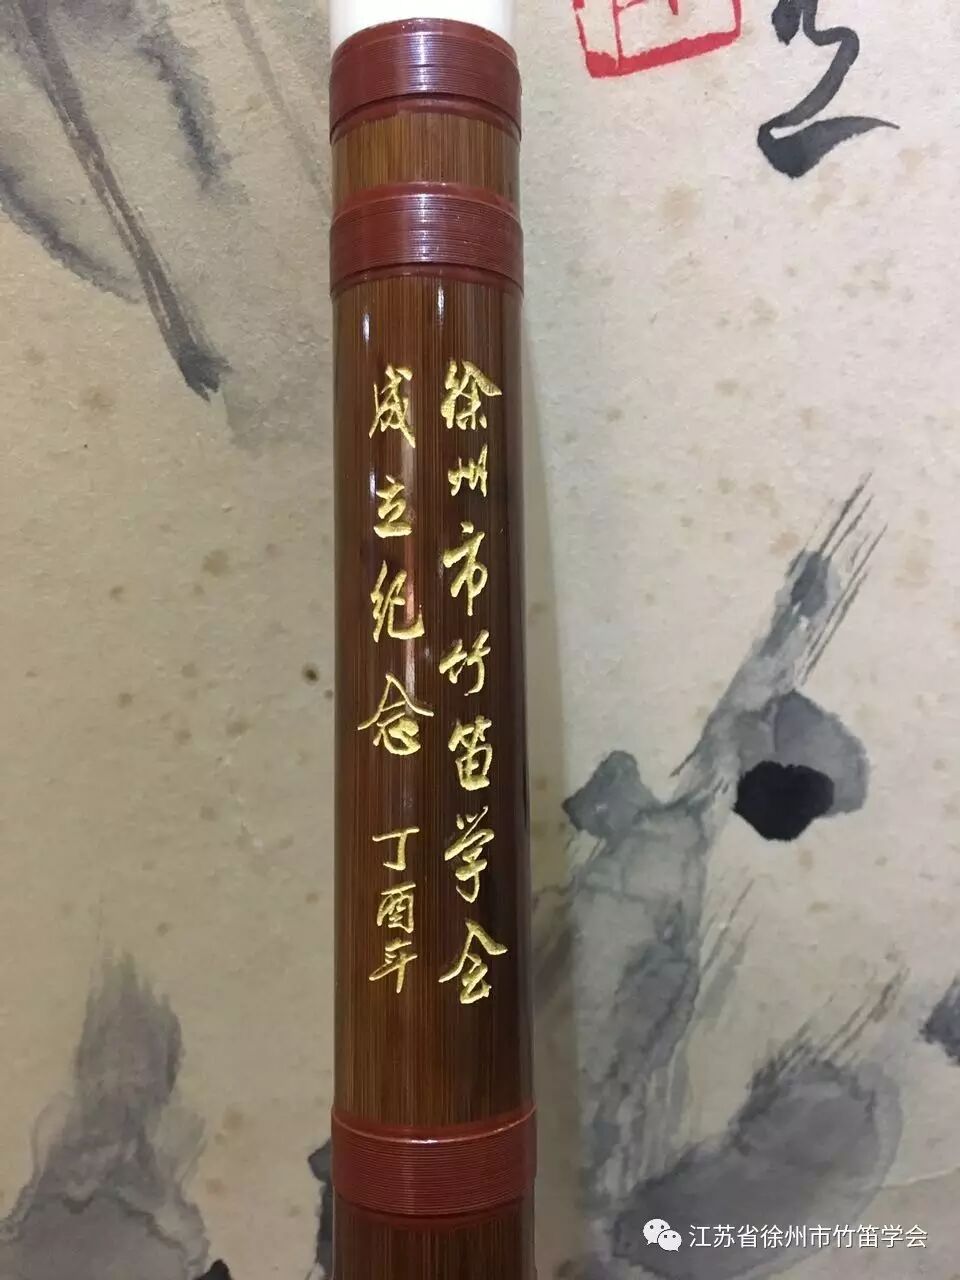 徐州市竹笛学会
成立纪念 丁酉年
江苏省徐州市竹笛学会